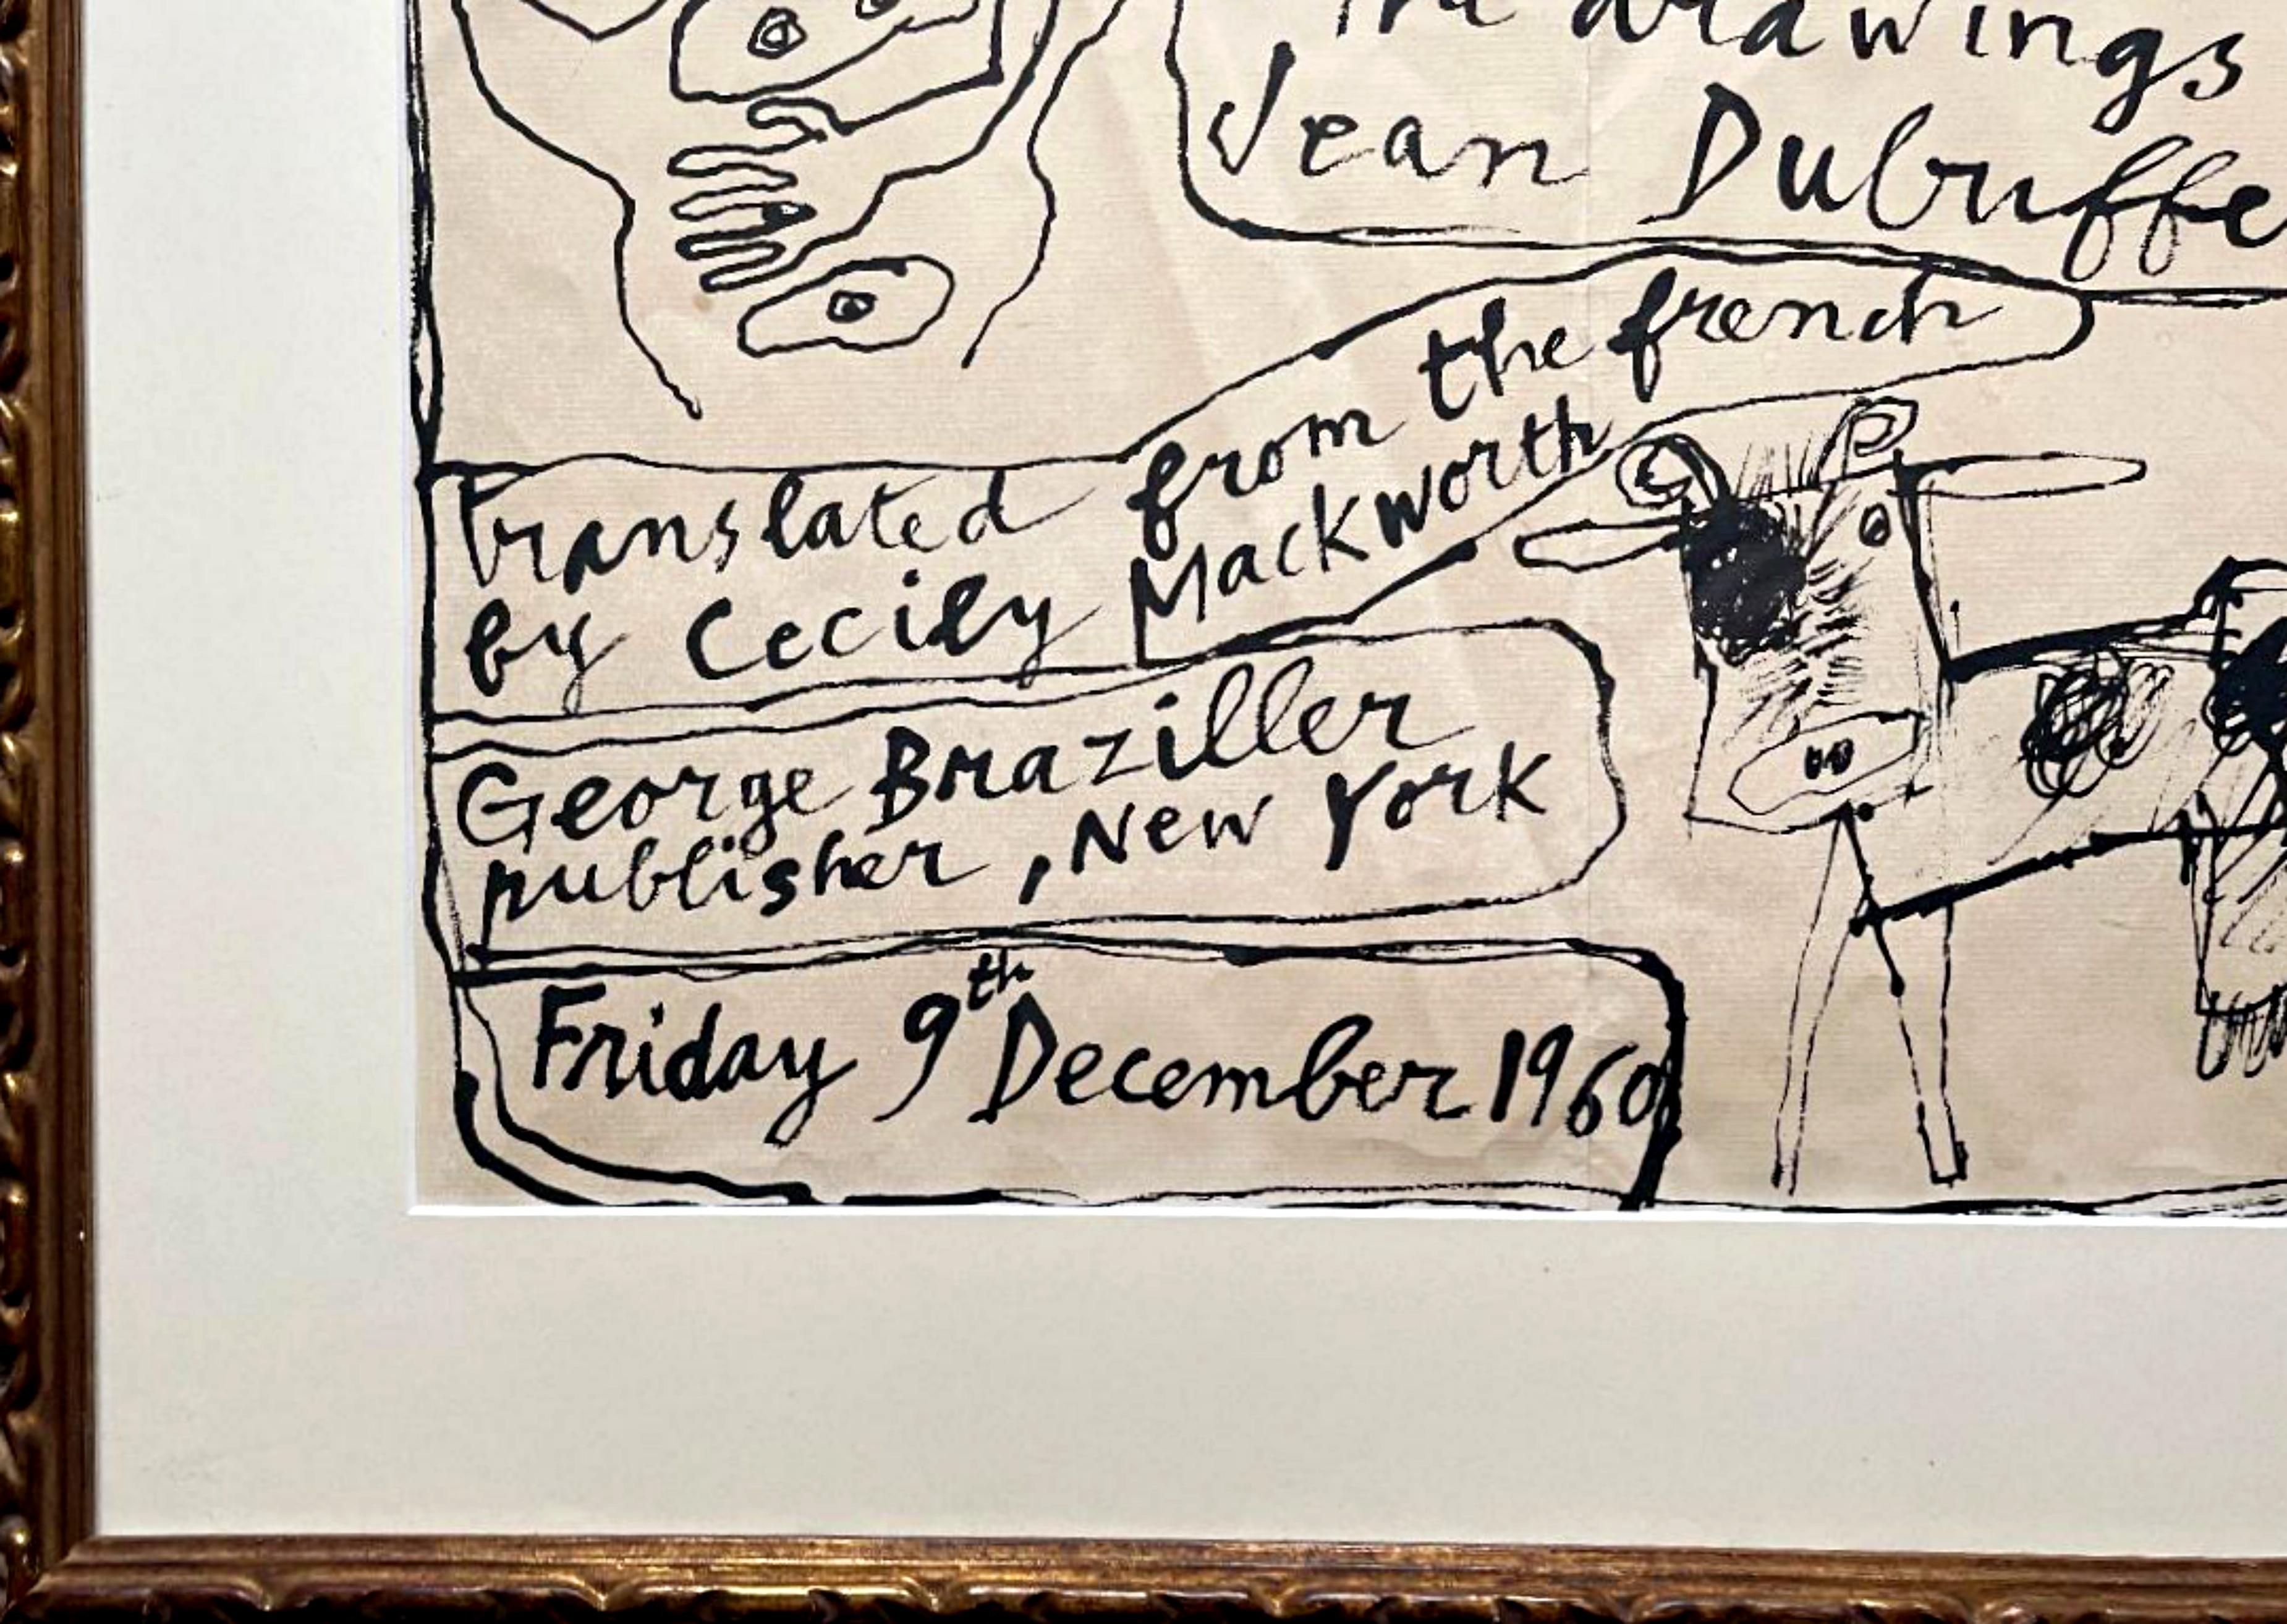 the drawings
Jean Dubuffe
translated from the french
by Cecily Mackworth
George Braziller
publisher, New York
Friday 9th December 1960